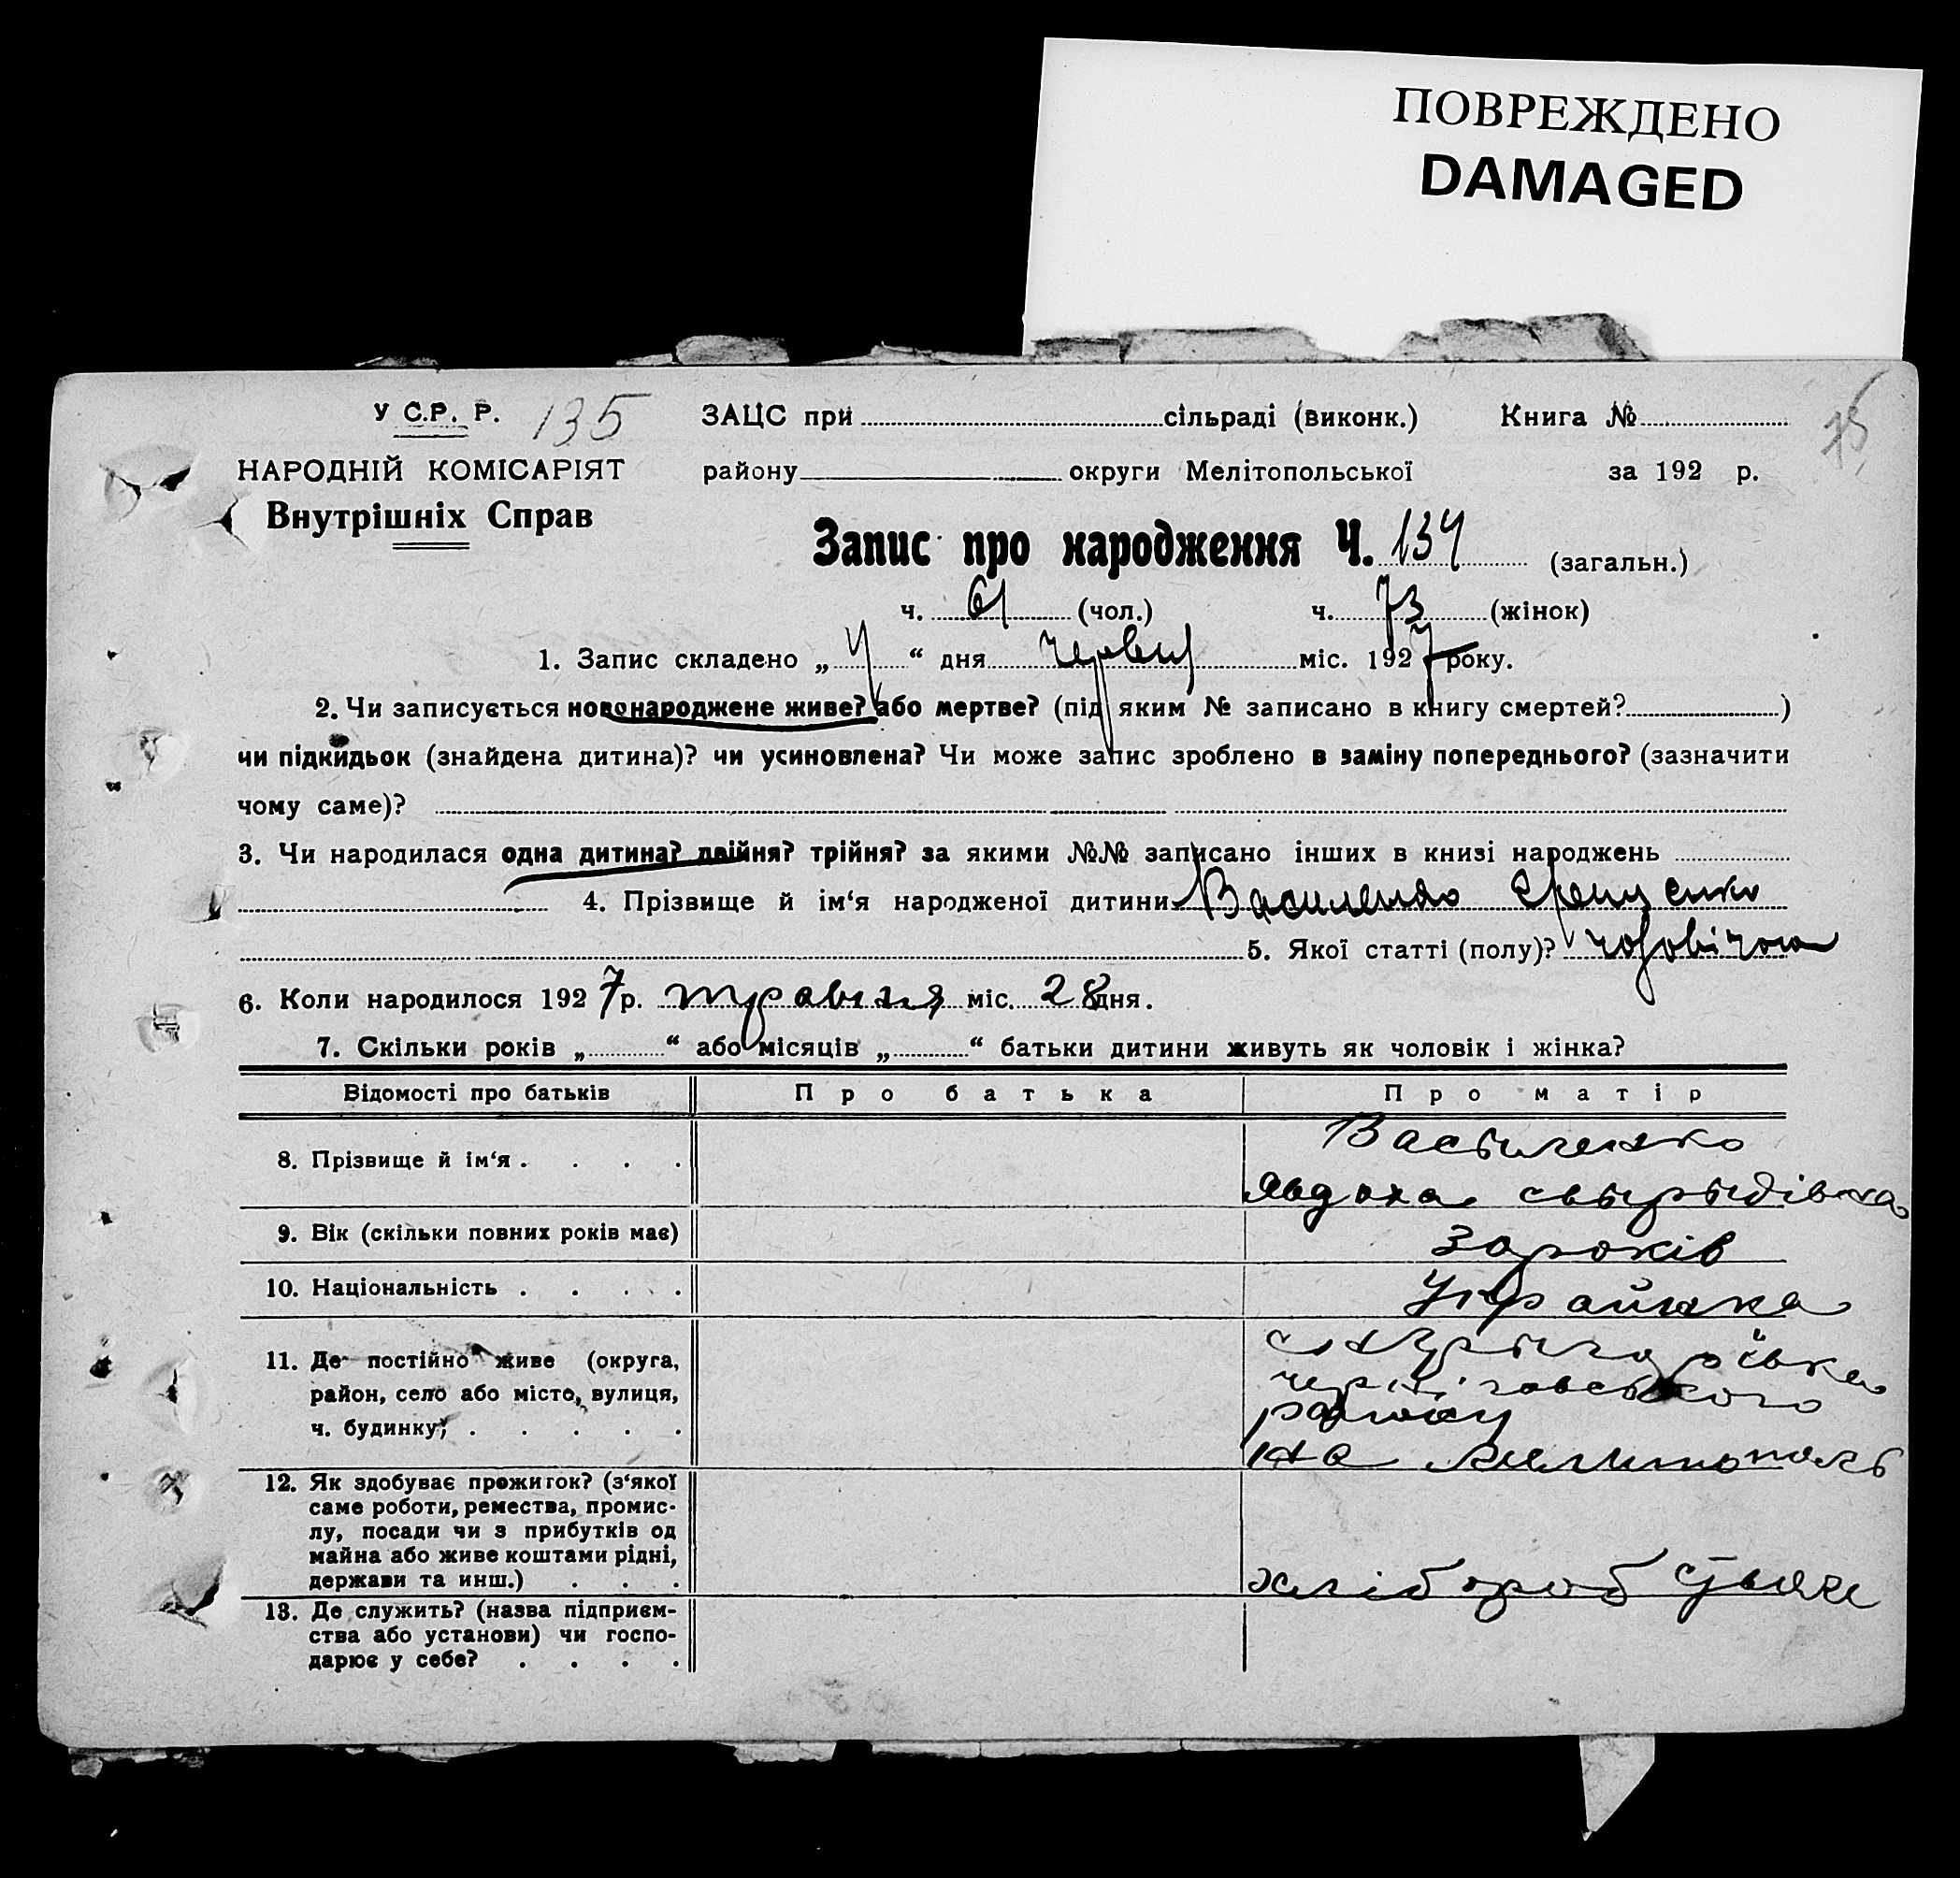 ПОВРЕЖДЕНО
DAMAGED
У С.Р. Р. 135 ЗАЦС при сільраді (виконк.) Книга № 75
НАРОДНІЙ КОМІСАРІЯТ району округи Мелітопольської за 192 р.
Внутрішніх Справ
Запис про народження Ч. 134 (загальн.)
ч. 61 (чол.) ч. 73 (жінок)
1. Запис складено „ 4 “ дня червня міс. 1927 року.
2. Чи записується новонароджене живе? або мертве? (під яким № записано в книгу смертей? )
чи підкидьок (знайдена дитина)? чи усиновлена? Чи може запис зроблено в заміну попереднього? (зазначити
чому саме)?
3. Чи народилася одна дитина? двійня? трійня? за якими №№ записано інших в книзі народжень
4. Прізвище й ім‘я народженої дитини Василенко
5. Якої статті (полу)? чоловічою
6. Коли народилося 1927 р. травня міс. 28 дня.
7. Скільки років „ “ або місяців „ “ батьки дитини живуть як чоловік і жінка?
Відомості про батьків Про батька Про матір
8. Прізвище й ім‘я . . . . Василенко
Явдоха Свырыдівна
9. Вік (скільки повних років має) 30 років
10. Національність . . . . Украйнка
11. Де постійно живе (округа,
район, село або місто, вулиця,
ч. будинку; . . . . .
черніговського
району
на Мелитополь
12. Як здобуває прожиток? (з‘якої
саме роботи, ремества, промис-
лу, посади чи з прибутків од
майна або живе коштами рідні,
держави та инш.) . . . хлібороб
13. Де служить? (назва підприєм-
ства або установи) чи госпо-
дарює у себе? . . . .